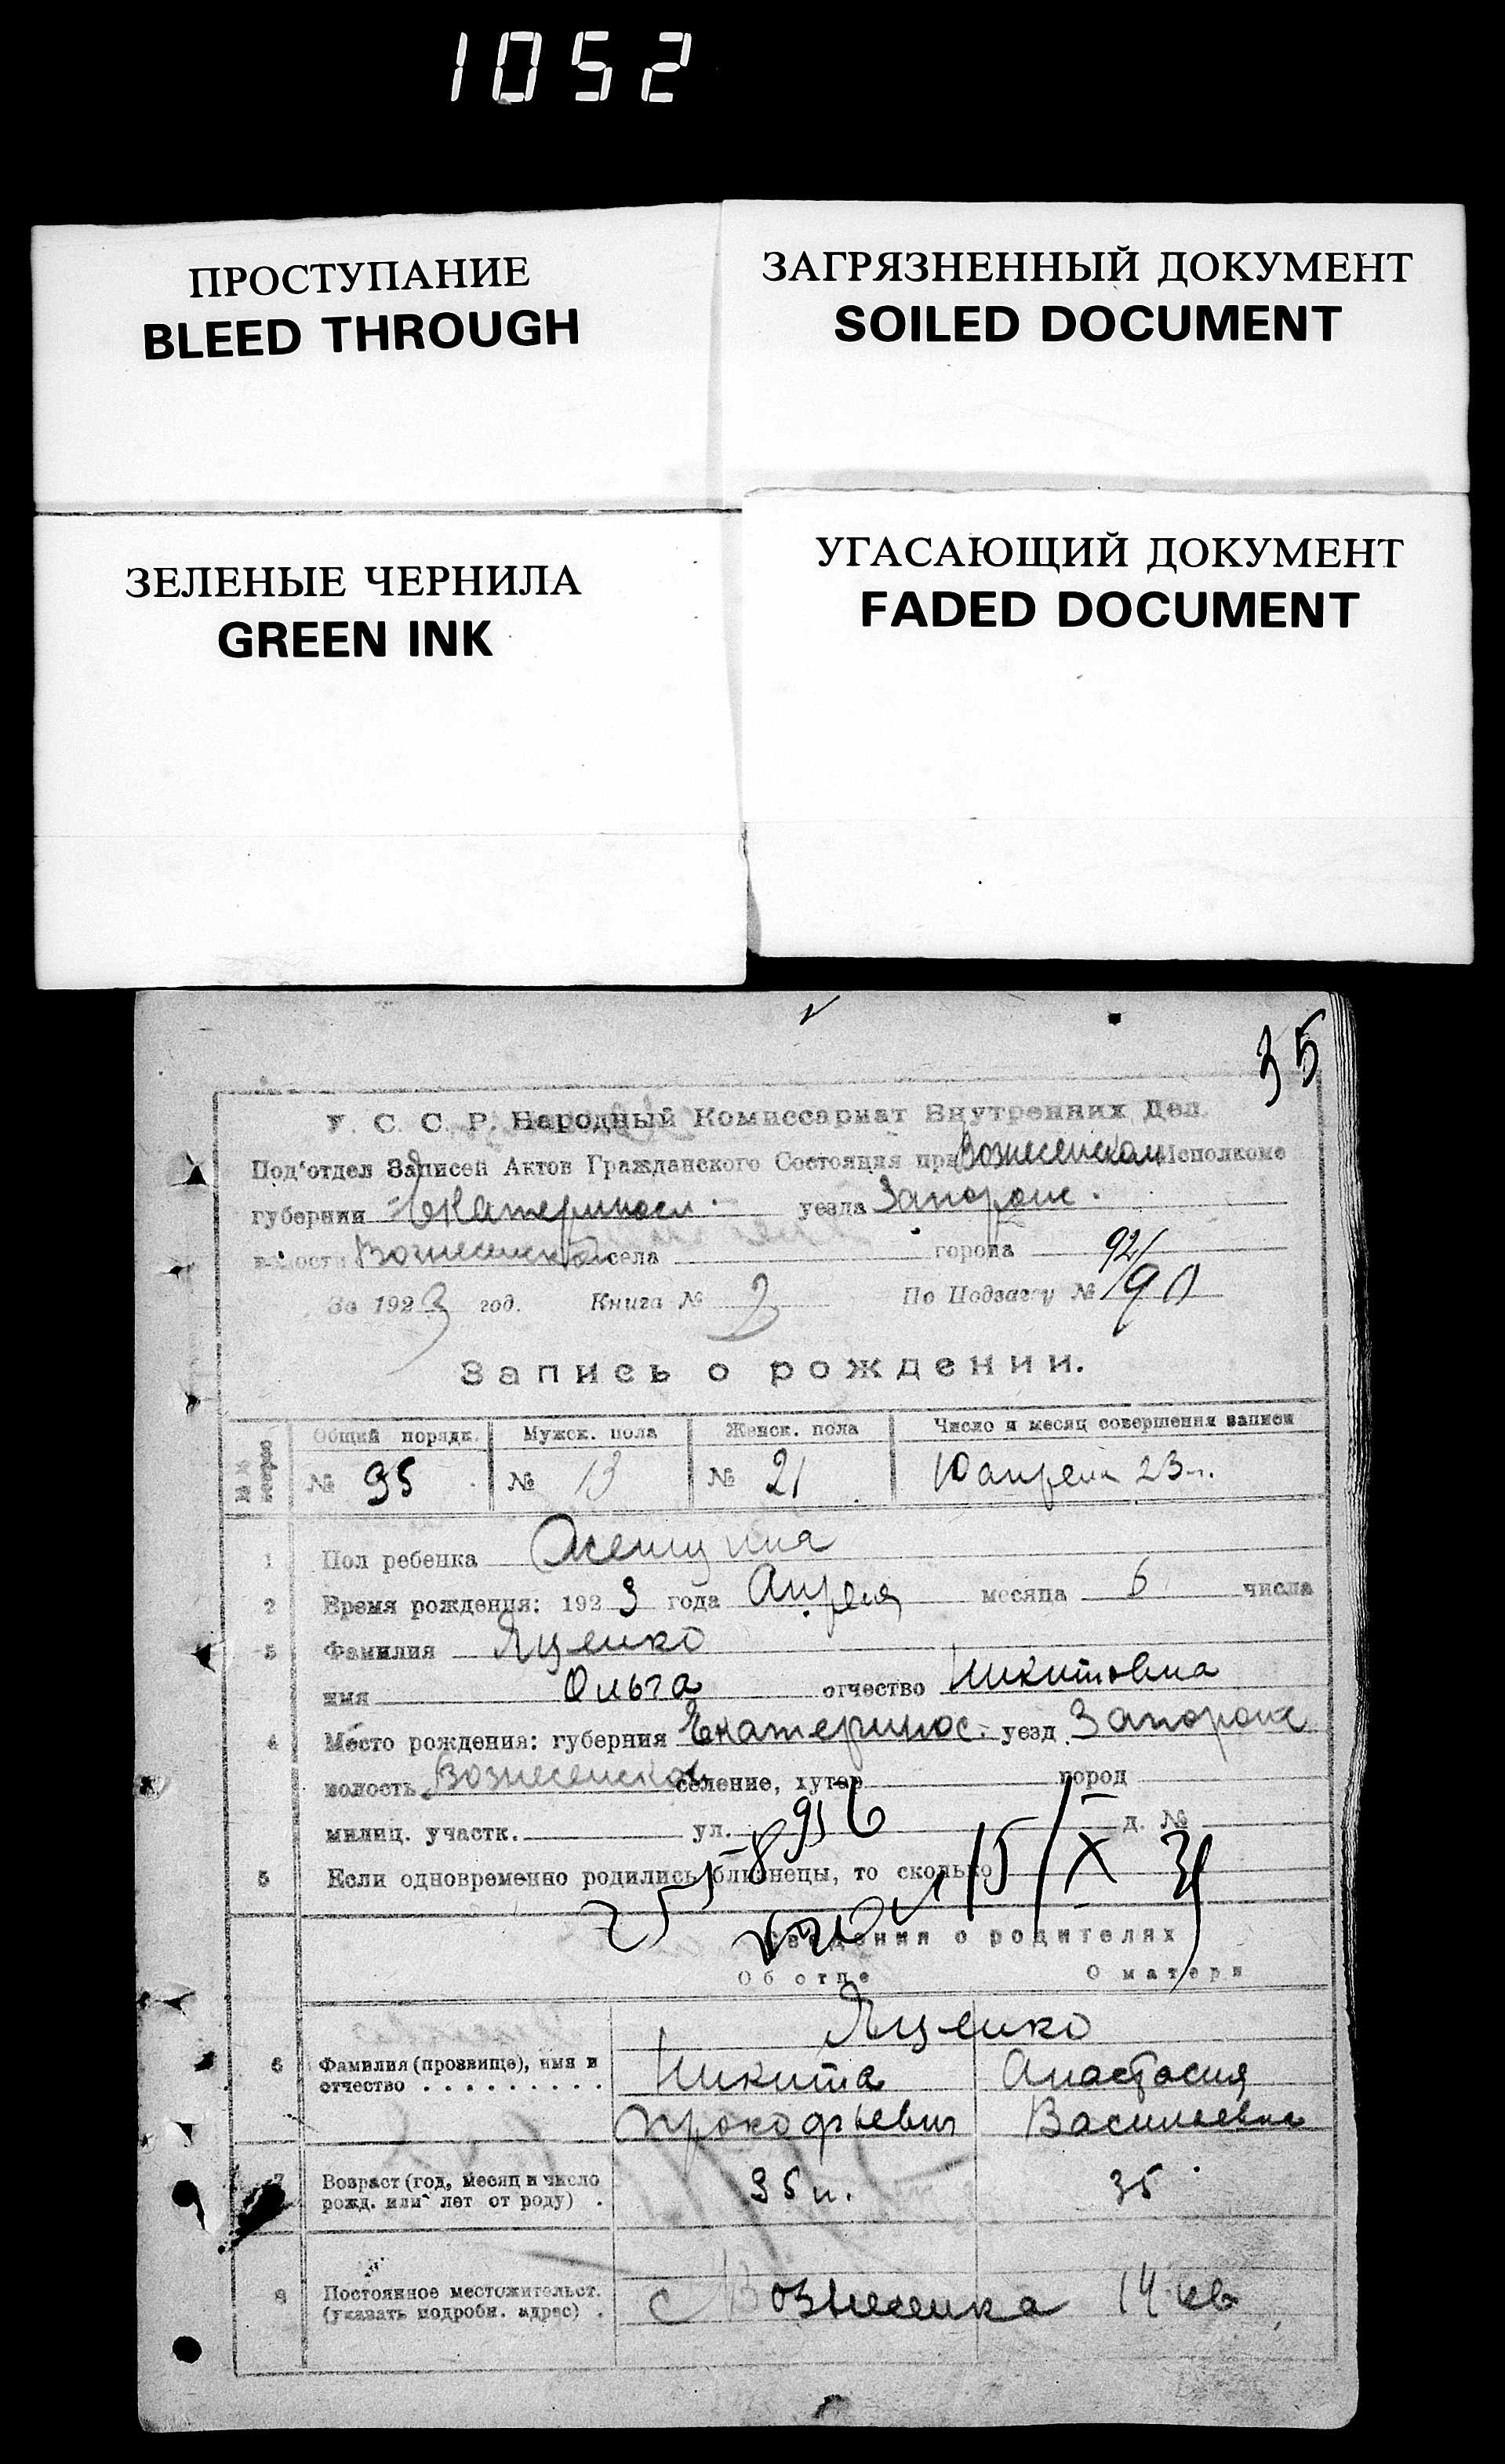 1052
ПРОСТУПАНИЕ
BLEED THROUGH
ЗАГРЯЗНЕННЫЙ ДОКУМЕНТ
SOILED DOCUMENT
ЗЕЛЕНЫЕ ЧЕРНИЛА
GREEN INK
УГАСАЮЩИЙ ДОКУМЕНТ
FADED DOCUMENT
35
У. С. С. Р. Народный Комиссариат Внутренних Дел.
Под'отдел Записей Актов Гражданского Состояния при Вознесенском Исполкоме
губернии Екатериносл. уезда Запорож.
волости Вознесенской села города
92/
За 1923 год. Книга № 2 По Подзагсу № 90
Запись о рождении.
№№ вопроса Общий порядк. Мужск. пола Женск. пола Число и месяц совершения записи
№ 35 № 13 № 21 10 апреля 23 г.
1 Пол ребенка Женщина
2 Время рождения: 1923 года Апреля месяца 6 числа
3 Фамилия Яценко
имя Ольга отчество Никитовна
4 Место рождения: губерния Екатеринос. уезд Запорож
волость Вознесенской селение, хутор город
милиц. участк. ул. д. №
5 Если одновременно родились близнецы, то сколько
15/X 31
Сведения о родителях
Об отце О матери
Яценко
6 Фамилия (прозвище), имя и отчество Никита Анастасия
Прокофьевич Васильевна
7 Возраст (год, месяц и число
рожд. или лет от роду) 35 л. 35
8 Постоянное местожительст.
(указать подробн. адрес) с Вознесенка 14 кв